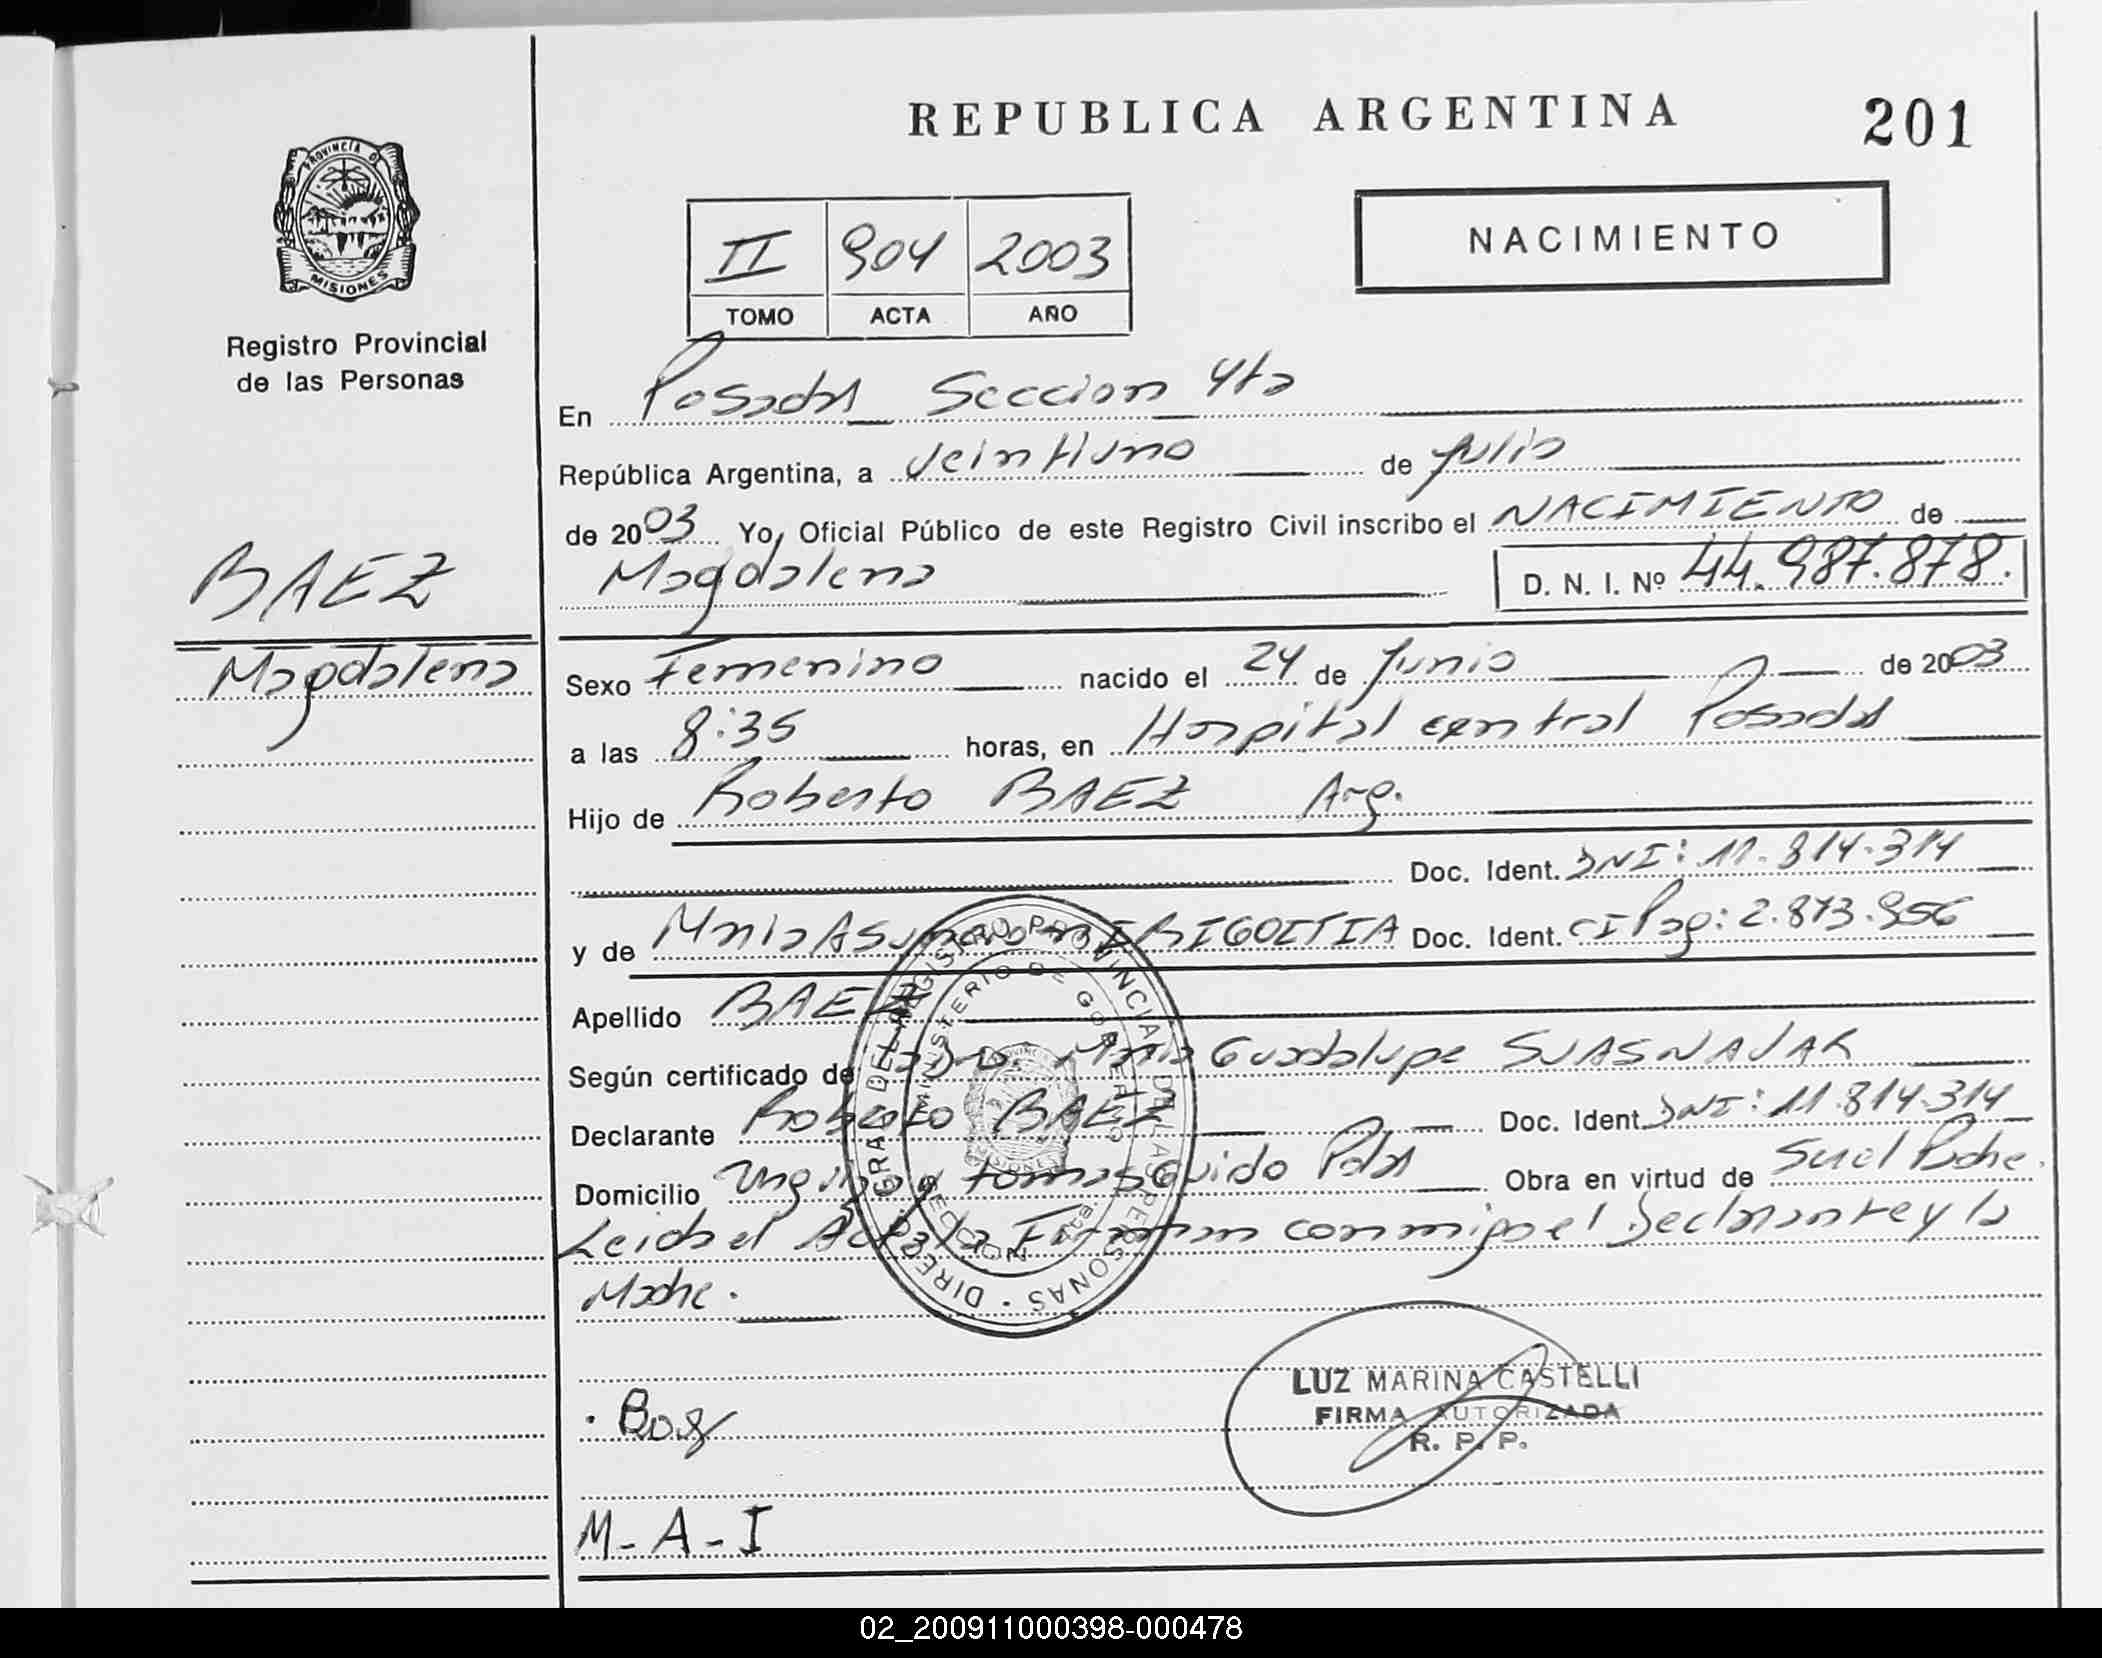 REPUBLICA ARGENTINA
201
PROVINCIA D
MISIONES
Registro Provincial
de las Personas
II 904 2003
TOMO ACTA AÑO
NACIMIENTO
En Posadas Seccion 4ta
República Argentina, a Veintiuno de Julio
de 2003 Yo, Oficial Público de este Registro Civil inscribo el NACIMIENTO de
Magdalena D. N. I. Nº 44.987.878.
BAEZ
Magdalena
Sexo Femenino nacido el 24 de Junio de 2003
a las 8:35 horas, en Hospital central Posadas
Hijo de Roberto BAEZ Arg.
Doc. Ident. DNI: 11.814.314
y de Maria IRIGOITIA Doc. Ident. CI Pag: 2.873.956
Apellido BAEZ
Según certificado de Maria Guadalupe SUASNAVAR
Declarante Roberto BAEZ Doc. Ident. DNI: 11.814.314
Domicilio tomas Guido Pdas Obra en virtud de Ser el Padre.
Leida el Acta la Firman conmigo el Declarante y la
Madre.
DIREC. GRAL. DEL REGISTRO PROVINCIAL DE LAS PERSONAS
MINISTERIO DE GOBIERNO
MISIONES
LUZ MARINA CASTELLI
FIRMA AUTORIZADA
R. P. P.
M-A-I
02_200911000398-000478